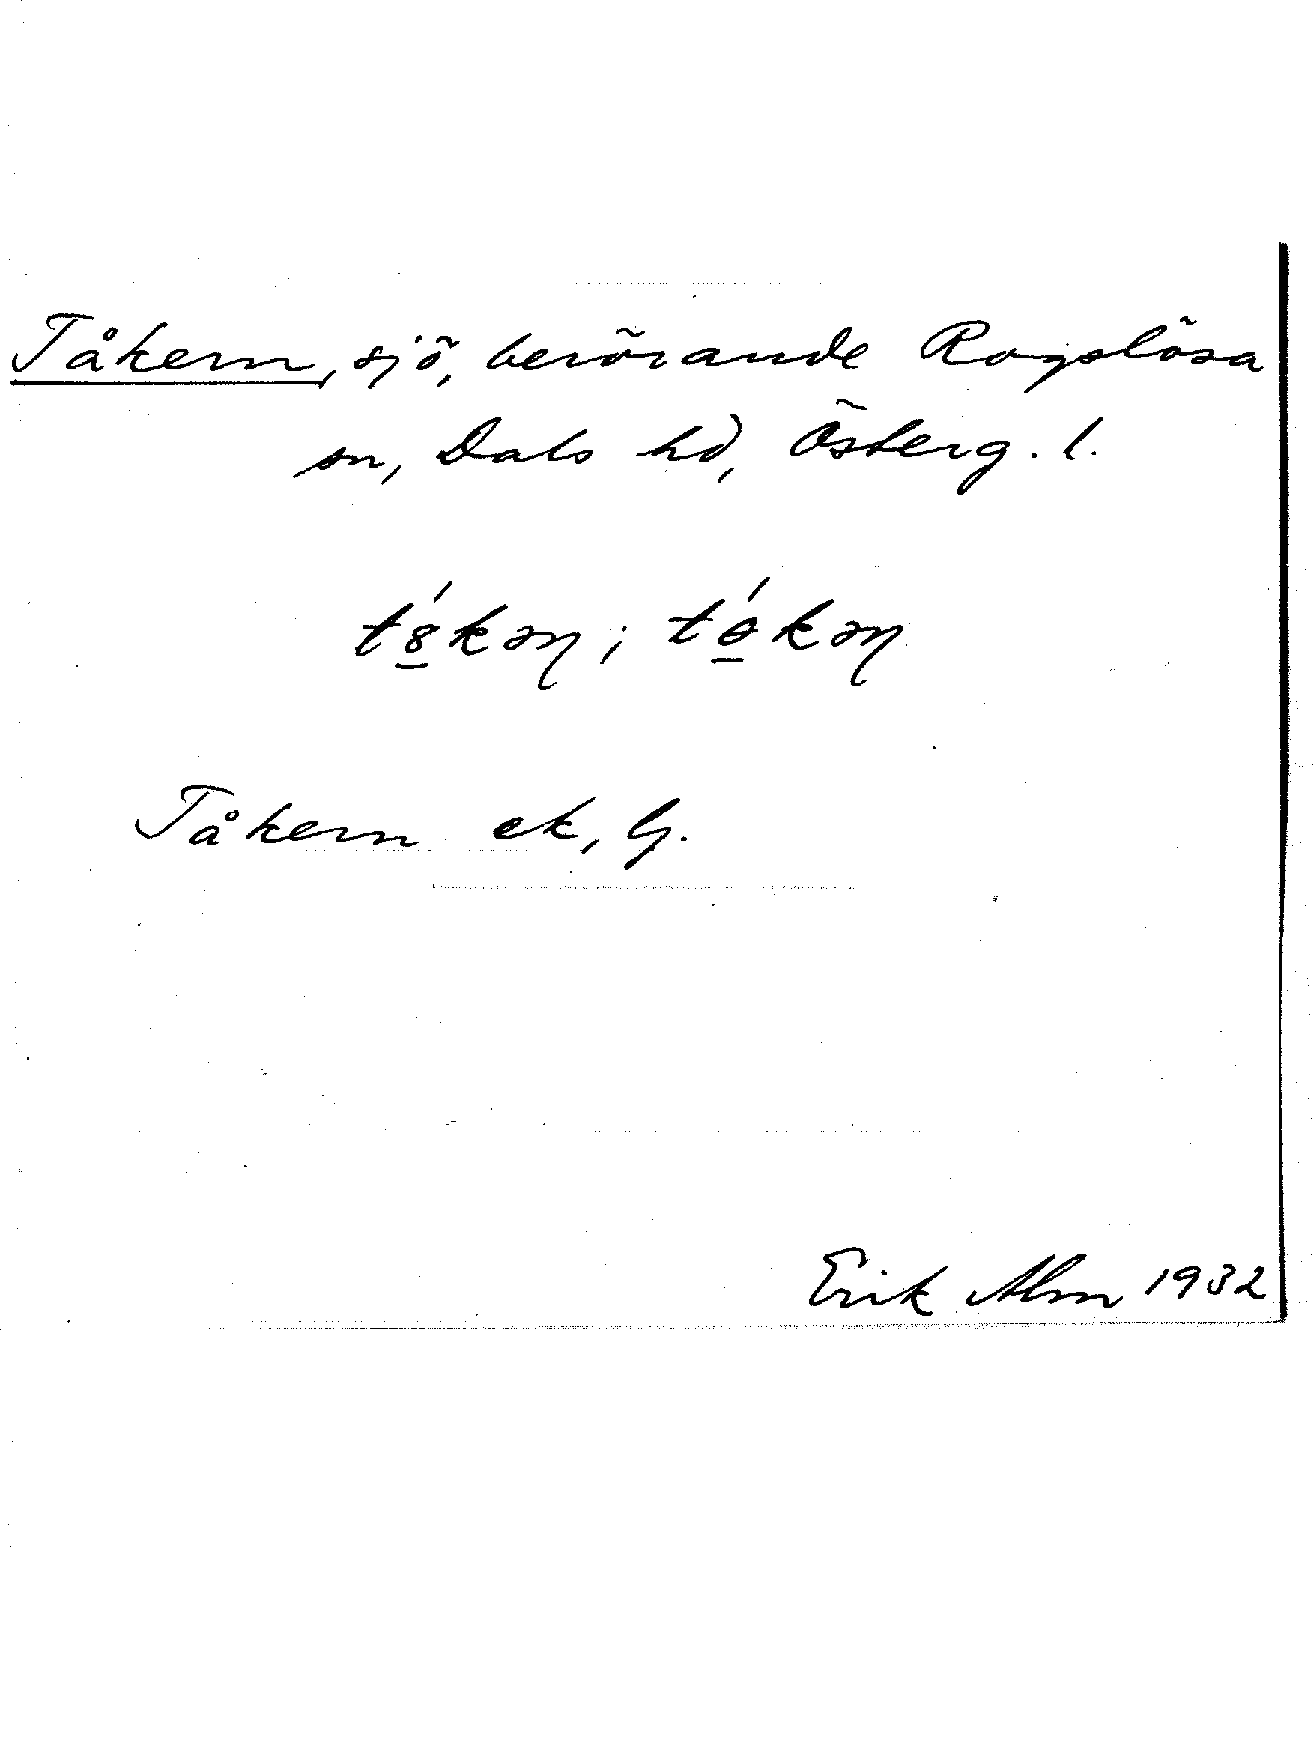 Tåkern, sjö, berörande Rogslösa
sn, Dals hd, Österg. l.
tȣ́kəɳ; tókəɳ
Tåkern ek, G.
Erik Alm 1932